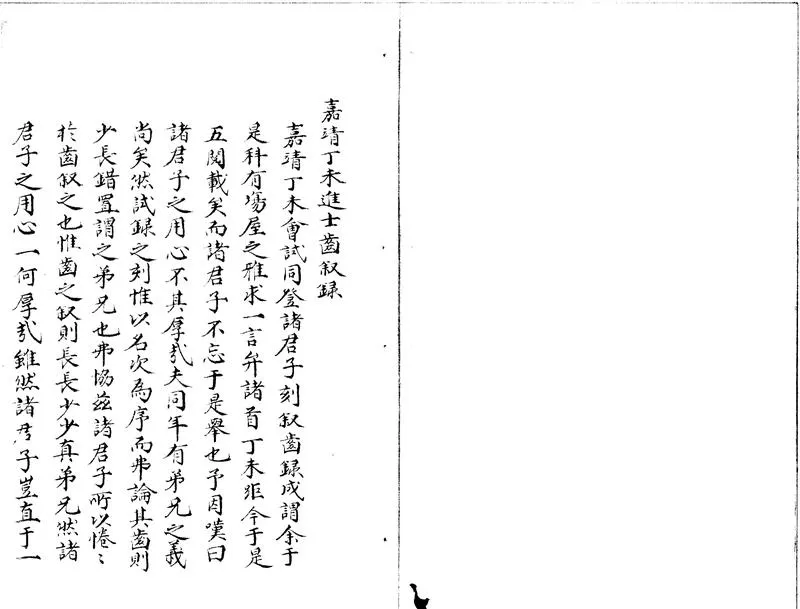 嘉靖丁未進士齒叙録
嘉靖丁未會試同登諸君子刻叙齒録成謂余于
是科有塲屋之雅求一言弁諸首丁未距今于是
五閱載矣而諸君子不忘于是舉也予因嘆曰
諸君子之用心不其厚㢤夫同年有弟兄之義
尚矣然試録之刻惟以名次為序而弗論其齒則
少長錯置謂之弟兄也弗協兹諸君子所以惓〻
於齒叙之也惟齒之叙則長長少少真弟兄然諸
君子之用心一何厚㢤雖然諸君子豈直于一